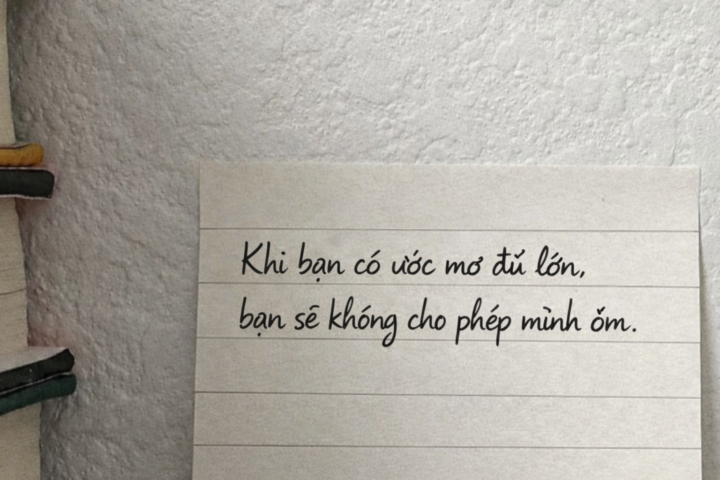 Khi bạn có ước mơ đủ lớn,
bạn sẽ khóng cho phép mình ốm.